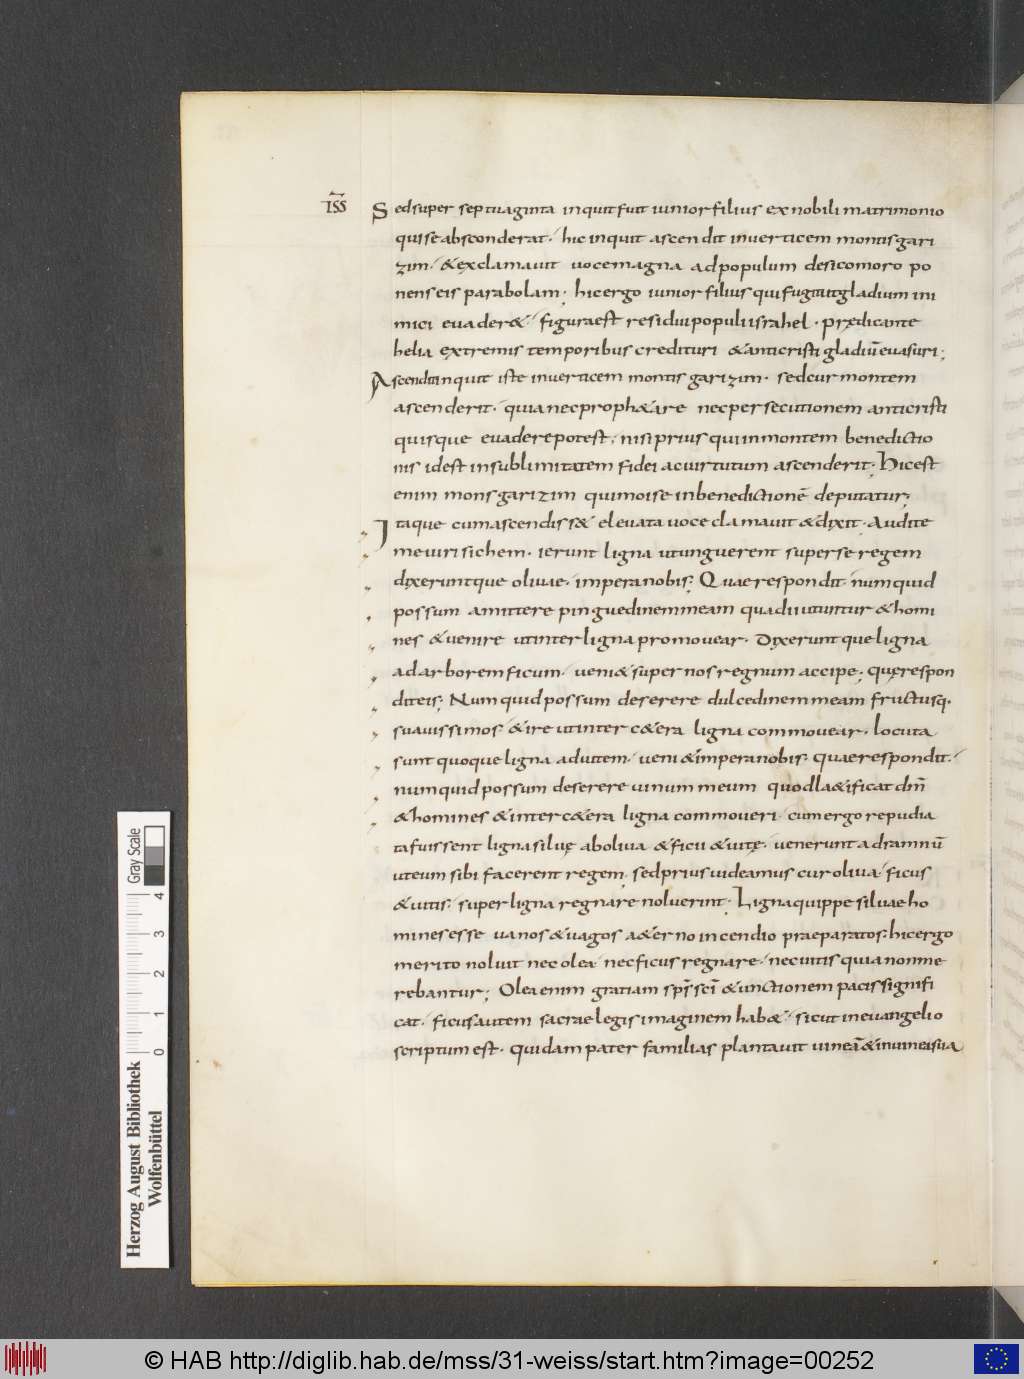 ISS Sed super septuaginta inquit fuit iunior filius ex nobili matrimonio
qui se absconderat· hic inquit ascendit in verticem montis gari
zim· & exclamauit voce magna ad populum de sicomoro po
nens eis parabolam; hic ergo iunior filius qui fugiit gladium ini
mici euader&· figura est residui populi israhel· prędicante
helia extremis temporibus credituri & anticristi gladiū euasuri;
Ascendit inquit iste in verticem montis garizim· sed cur montem
ascenderit· quia nec proph&are nec persecutionem anticristi
quisque euadere potest; nisi prius qui in montem benedictio
nis id est in sublimitatem fidei ac uirtutum ascenderit; Hic est
enim mons garizim qui moise in benedictionē deputatur;
Itaque cum ascendiss& eleuata uoce clamauit & dixit· Audite
me uiri sichem· ierunt ligna ut unguerent super se regem
dixeruntque oliuae· impera nobis; Quae respondit· numquid
possum amittere pinguedinem meam qua dii utuntur & homi
nes & uenire ut inter ligna promouear· Dixeruntque ligna
ad arborem ficum· ueni & super nos regnum accipe; quę respon
dit eis; Numquid possum deserere dulcedinem meam fructusq·
suauissimos· & ire ut inter c&era ligna commouear· locuta
sunt quoque ligna ad uitem· ueni & impera nobis· quae respondit·
numquid possum deserere uinum meum quod l&ificat dm̄
& homines & inter c&era ligna commoueri· cum ergo repudia
ta fuissent ligna siluę ab oliua & ficu & uitę· uenerunt ad ramnū
ut eum sibi facerent regem; sed prius uideamus cur oliua· ficus
& uitis· super ligna regnare noluerint· Ligna quippe siluae ho
mines esse uanos & uagos a&erno incendio praeparatos; hic ergo
merito noluit nec olea· nec ficus regnare· nec uitis quia non me
rebantur; Olea enim gratiam sps̄ sc̄i & unctionem pacis signifi
cat· ficus autem sacrae legis imaginem hab&· sicut in euangelio
scriptum est· quidam pater familias plantauit uineā & in uinea sua
Gray Scale
0 1 2 3 4
Herzog August Bibliothek
Wolfenbüttel
© HAB http://diglib.hab.de/mss/31-weiss/start.htm?image=00252